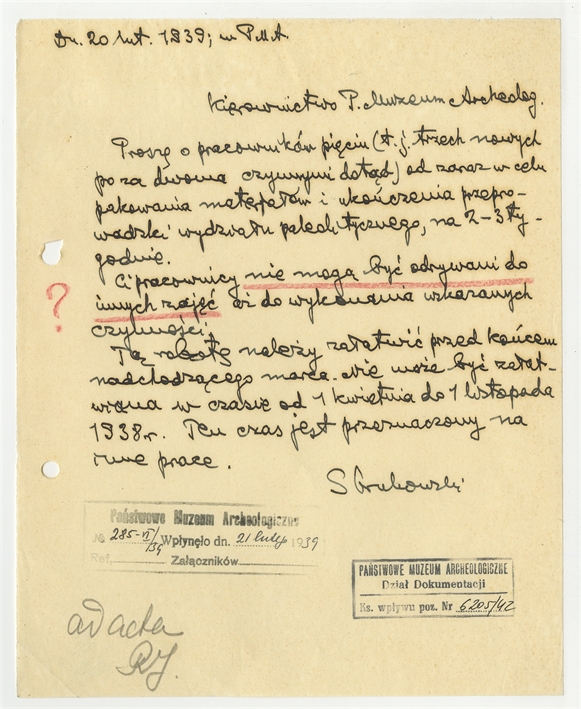 Dn. 20 lut. 1939; w P.M.A.
Kierownictwo P. Muzeum Archeolog.
Proszę o pracowników pięciu (t.j. trzech nowych
poza dwoma czynnymi dotąd) od zaraz w celu
pakowania materjałów i ukończenia przepro-
wadzki wydziału paleolitycznego, na 2-3 ty-
godnie.
Ci pracownicy nie mogą być odrywani do
?
innych zajęć aż do wykonania wskazanych
czynności.
Tę robotę należy załatwić przed końcem
nadchodzącego marca. Nie może być załat-
wiona w czasie od 1 kwietnia do 1 listopada
1938 r. Ten czas jest przeznaczony na
inne prace.
S Krukowski
Państwowe Muzeum Archeologiczne
№ 285-VI/39 Wpłynęło dn. 21 lutego 1939
Ref. Załączników
PAŃSTWOWE MUZEUM ARCHEOLOGICZNE
Dział Dokumentacji
Ks. wpływu poz. Nr 6205/42
ad acta
RJ.